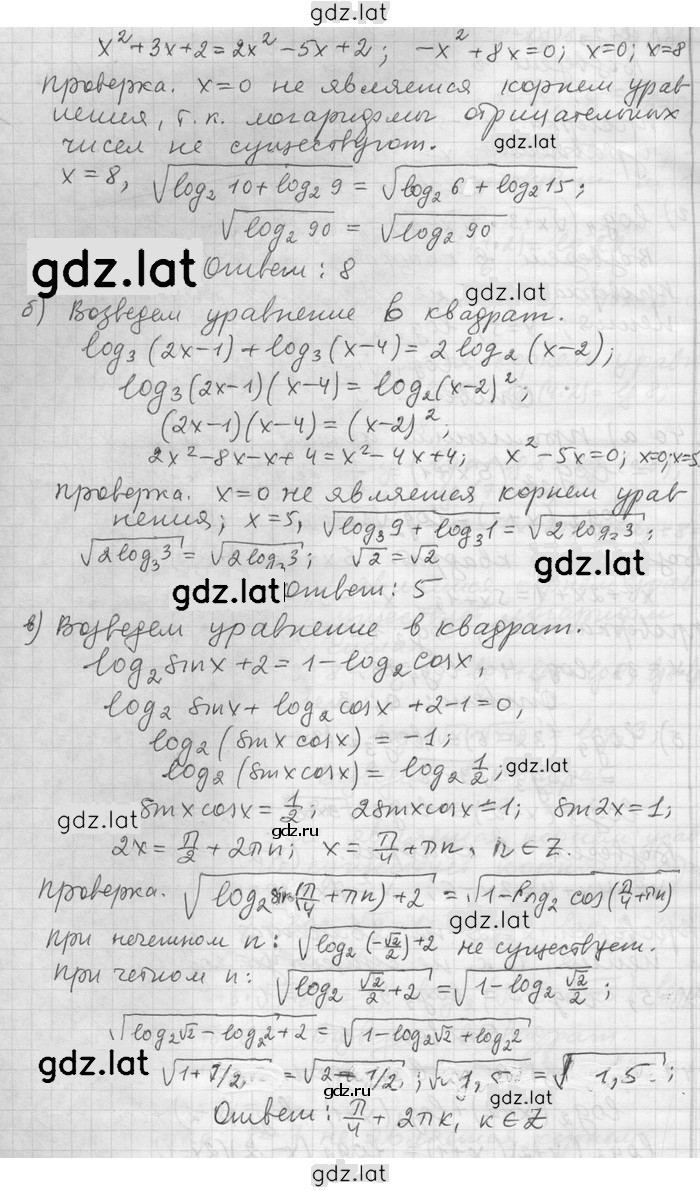 gdz.lat
x²+3x+2=2x²-5x+2; -x²+8x=0; x=0; x=8
Проверка. x=0 не является корнем урав
нения, т.к. логарифмы отрицательных
чисел не существуют.
gdz.lat
x=8, √(log₂ 10+log₂ 9) = √(log₂ 6 + log₂ 15);
√(log₂ 90) = √(log₂ 90)
gdz.lat Ответ: 8
gdz.lat
б) Возведем уравнение в квадрат.
log₃ (2x-1)+log₃ (x-4)=2 log₂ (x-2);
log₃ (2x-1)(x-4)= log₂(x-2)²;
(2x-1)(x-4)=(x-2)²;
2x²-8x-x+4=x²-4x+4; x²-5x=0; x=0; x=5
Проверка. x=0 не является корнем урав
нения; x=5, √(log₃ 9 + log₃ 1) = √(2 log₂ 3);
√(2 log₃ 3) = √(2 log₂ 3); √2 = √2
gdz.lat
gdz.lat Ответ: 5
в) Возведем уравнение в квадрат.
log₂ sinx+2=1-log₂ cosx,
log₂ sinx+ log₂ cosx +2-1=0;
log₂ (sinx cosx) = -1;
log₂ (sinx cosx) = log₂ 1/2; gdz.lat
sinx cosx = 1/2; 2sinx cosx=1; sin2x=1;
gdz.lat
gdz.ru
2x= π/2 + 2πn; x= π/4 +πn, n∈Z.
Проверка. √(log₂ sin(π/4 +πn)+2) = √(1-log₂ cos(π/4+πn))
gdz.lat
При нечетном n: √(log₂ (-√2/2)+2) не существует.
При четном n: √(log₂ √2/2 +2) = √(1-log₂ √2/2);
√(log₂√2 - log₂2+2) = √(1-log₂√2+log₂2)
gdz.lat √(1+1/2) = √(2-1/2); √(1,5) = √(1,5);
gdz.ru
Ответ: π/4 + 2πk, k∈Z
gdz.lat